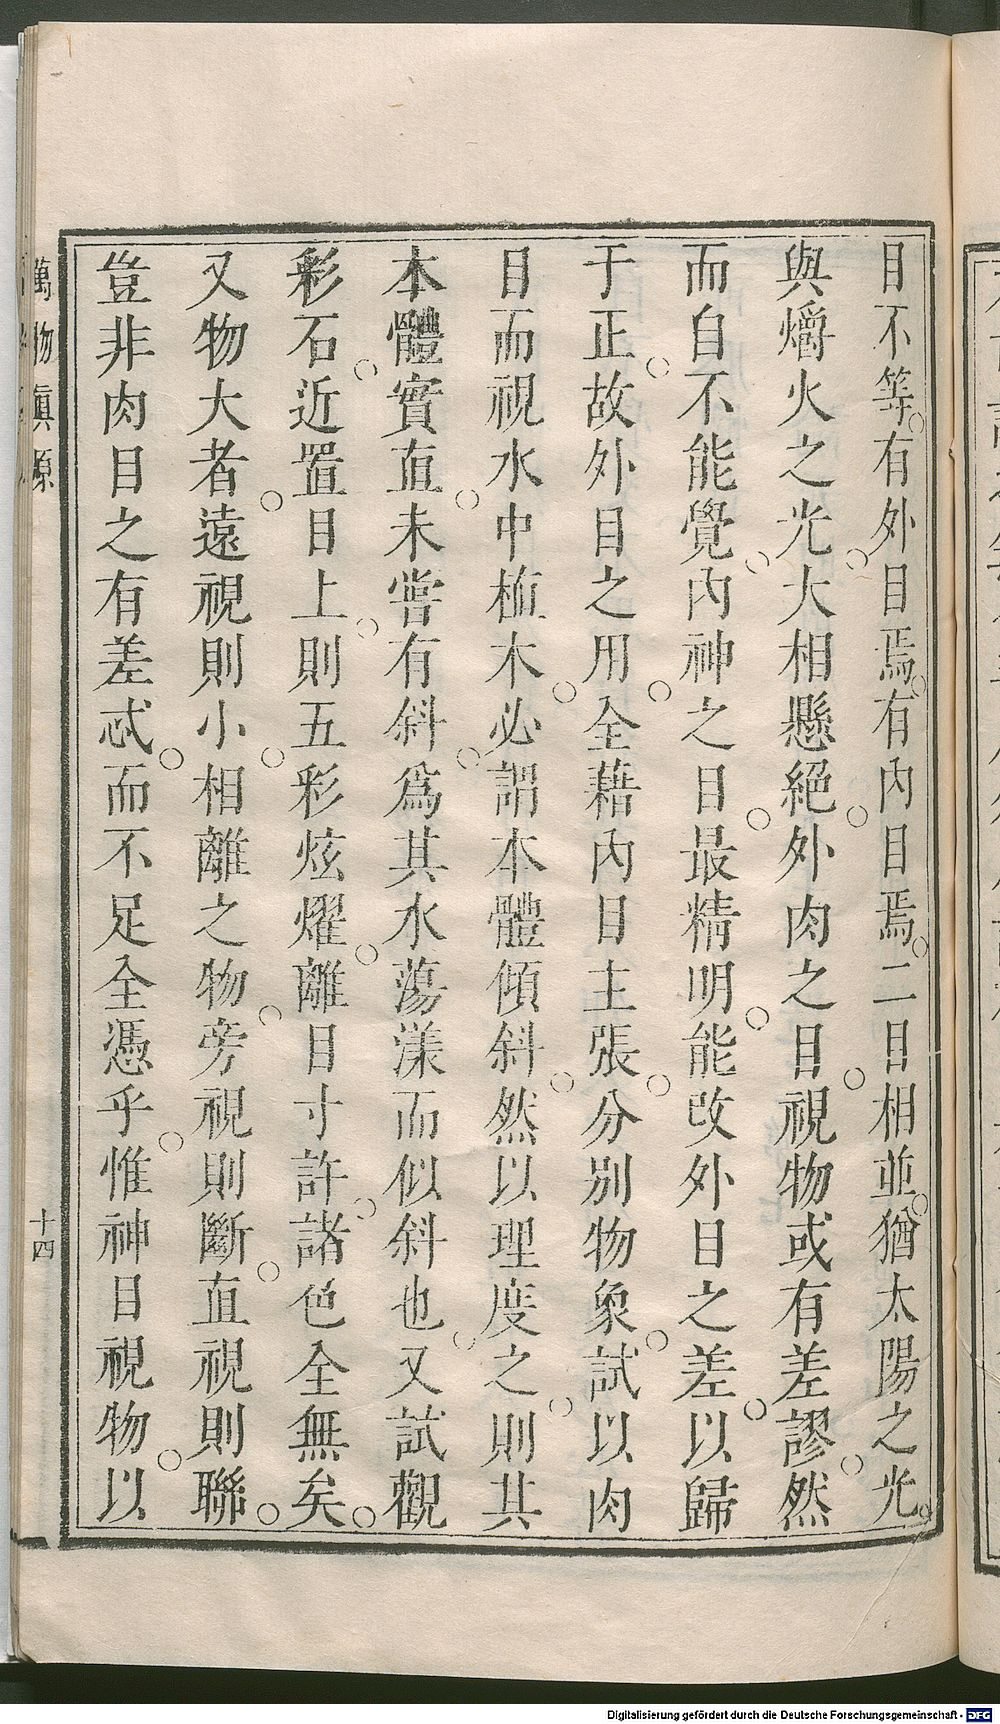 目不等。有外目焉。有內目焉。二目相並。猶太陽之光。
與爝火之光。大相懸絕。外肉之目。視物或有差謬。然
而自不能覺。內神之目。最精明。能改外目之差。以歸
于正。故外目之用。全藉內目主張。分別物象。試以肉
目而視水中植木。必謂本體傾斜。然以理度之。則其
本體實直。未嘗有斜。爲其水蕩漾而似斜也。又試觀
彩石。近置目上。則五彩炫燿。離目寸許。諸色全無矣。
又物大者。遠視則小。相離之物。旁視則斷。直視則聯。
豈非肉目之有差忒。而不足全憑乎。惟神目視物。以
萬物真原
十四
Digitalisierung gefördert durch die Deutsche Forschungsgemeinschaft - DFG